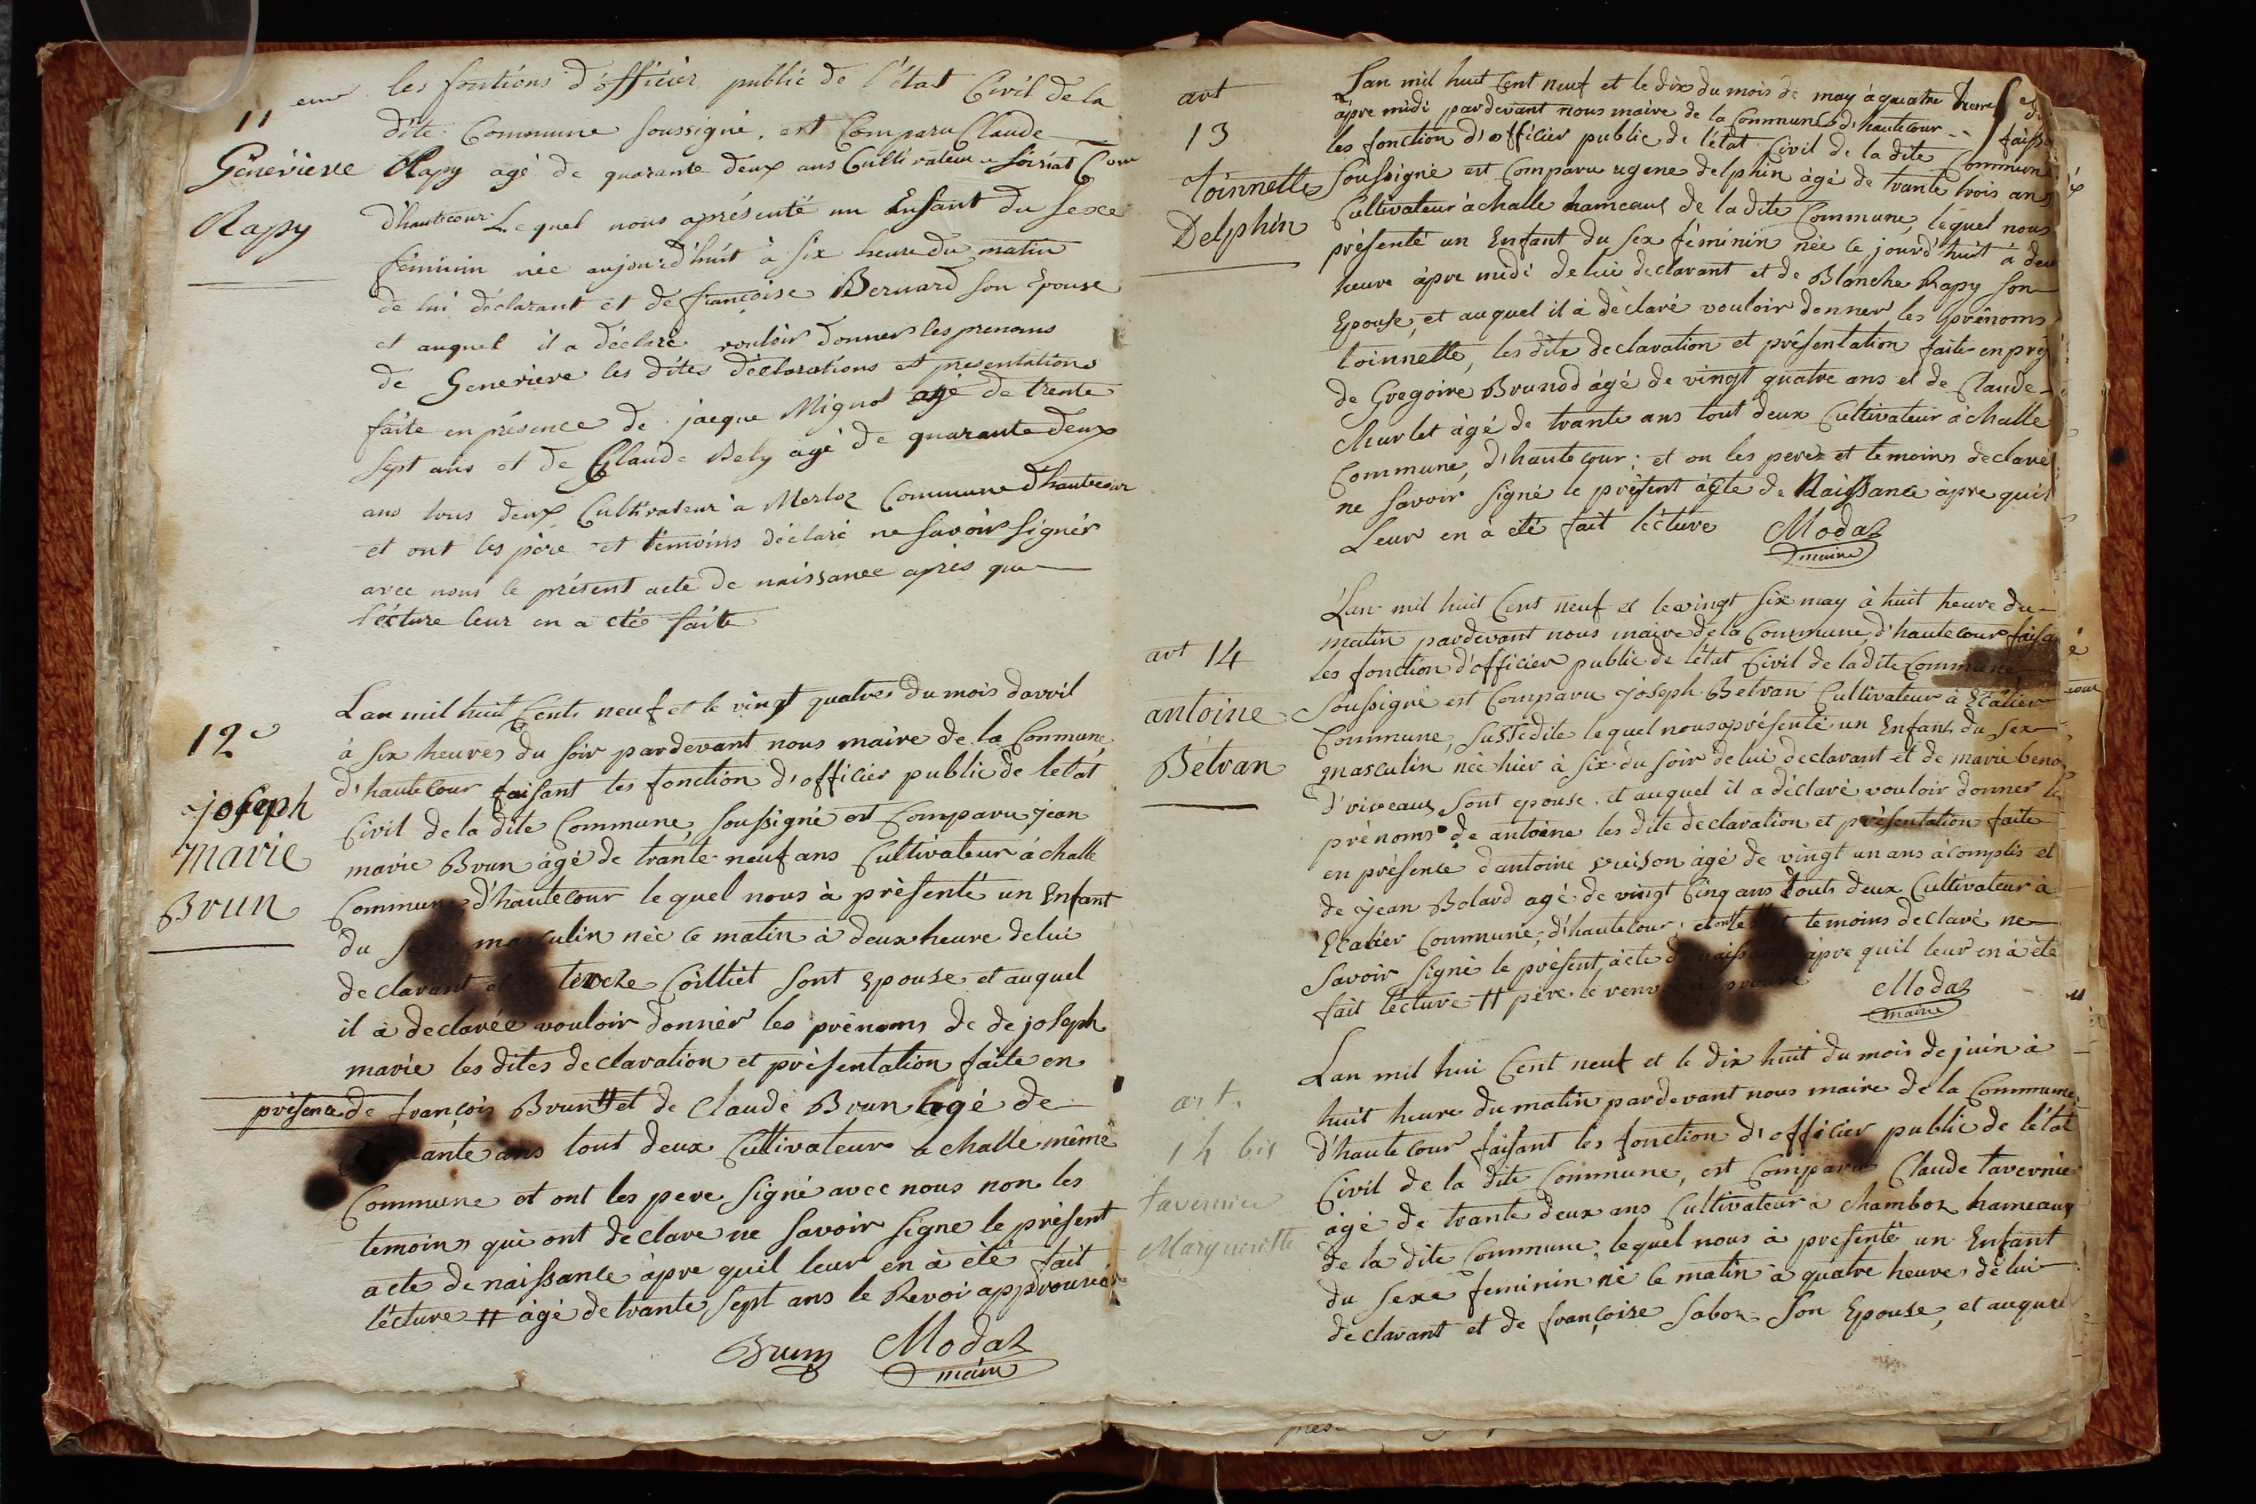 11 eme
Geneviève
Rapy
les fontions d'officier public de l'état Civil de la
dite Commune soussigné, est Comparu Claude
Rapy agé de quarante deux ans Cultivateur a soiriat Com
d'hautecour Lequel nous a présenté un Enfant du sexe
féminin née aujourd'huit à six heure du matin
de lui déclarant et de françoise Bernard son épouse
et auquel il a déclaré vouloir donner les prenoms
de Genevieve les dites déclarations et presentations
faite en présence de jacque Mignot agé de trente
sept ans et de Claude Bely agé de quarante deux
ans tous deux Cultivateur à Merloz Commune d'hautecour
et ont les père et témoins déclaré ne savoir signér
avec nous le présent acte de naissance après que
lecture leur en a été faite
12e
joseph
marie
Brun
Lan mil huit Cents neuf et le vingt quatres du mois davril
à six heures du soir pardevant nous maire de la Commune
d'hautecour faisant les fonction d'officier public de letat
Civil de la dite Commune, soussigné est Comparu jean
marie Brun àgé de trante neuf ans Cultivateur à challe
Commune d'hautecour lequel nous à présenté un Enfant
du masculin née ce matin à deux heure delui
declarant et Coilliet sont Epouse et auquel
il à declarée vouloir donner les prénoms de de joseph
marie les dites declaration et présentation faite en
présence de françois Brun # et de Claude Brun agé de
ans tout deux Cultivateur a challe même
Commune et ont les pere signé avec nous non les
temoins qui ont declare ne savoir signe le présent
acte de naissance àpre quil leur en à été fait
lécture # àgé de trante sept ans le Revoi approuvée
Brun Modaz
maire
art
13
toinnette
Delphin
Lan mil huit Cent neuf et le dix du mois de may à quatre heure
àpre midi pardevant nous maire de la Commune d'hautecour
les fonction d'officier public de létat Civil de la dite Commune
soussigné est Comparu ugene delphin àgé de trante trois ans
Cultivateur à challe hameaux de la dite Commune, lequel nous
présenté un Enfant du sex féminin née ce jourd'huit à deu
heure àpre midi de lui declarant et de Blanche Rapy son
Epouse, et auquel il à déclaré vouloir donner les prénoms
toinnette, les dite declaration et présentation faite en pré
de Gregoire Brunod àgé de vingt quatre ans et de Claude
Charlet àgé de trante ans tout deux Cultivateur à challe
Commune, d'hautecour; et on les perez et temoins declaré
ne savoir signé le présent àcte de Naissance àpre quil
Leur en à été fait lécture Modaz
maire
art 14
antoine
Bétvan
Lan mil huit Cent neuf et le vingt six may à huit heure du
matin pardevant nous maire de la Commune d'hautecour faisa
les fonction d'officier public de létat Civil de la dite Commune
soussigné est Comparu joseph Betvan Cultivateur à
Commune, sussédite lequel nous a présenté un Enfant du sex
masculin née hier à six du soir de lui declarant et de marie
sont epouse, et auquel il a déclaré vouloir donner le
prénoms de antoine les dite declaration et présentation faite
en présence dantoine vuison àgé de vingt un ans àcomplis et
de jean Bolard agé de vingt Cinq ans touts deux Cultivateur à
Commune, d'hautecour; temoins declaré ne
savoir signé le présent, àcte àpre quil leur en à été
fait lécture # père le
Modaz
maire
art.
14 bis
tavernier
Margueritte
Lan mil hui Cent neuf et le dix huit du mois de juin à
huit heure du matin pardevant nous maire de la Commune
d'hautecour faisant les fonction d'officier public de létat
Civil de la dite Commune, est Comparu Claude tavernie
àgé de trante deux ans Cultivateur à chamboz hameaux
de la dite Commune, lequel nous à présenté un Enfant
du sexe feminin né ce matin à quatre heures de lui
declarant et de françoise sabon son Epouse, et auquel